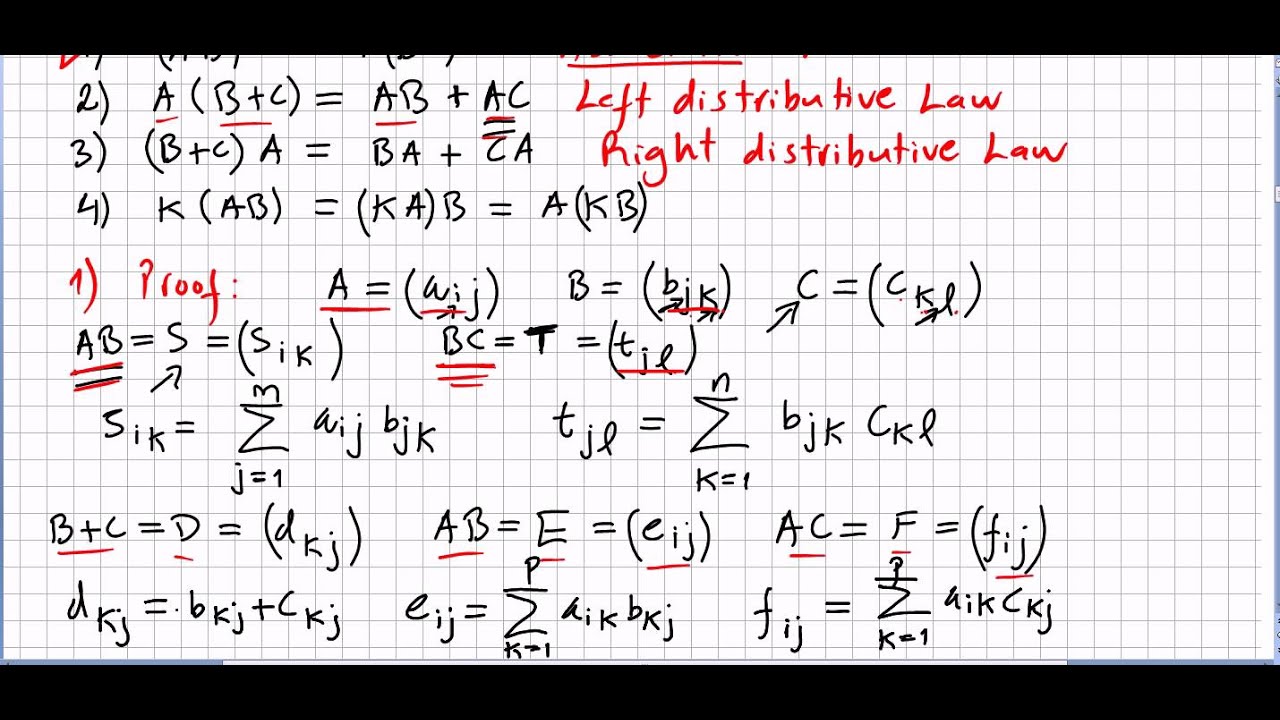 2) A (B+C) = AB + AC Left distributive Law
3) (B+C) A = BA + CA Right distributive Law
4) K (AB) = (KA)B = A(KB)
1) Proof: A = (aij) B = (bjk) C = (Ckl)
AB = S = (Sik) BC = T = (tjl)
Sik = ∑_{j=1}^{m} aij bjk tjl = ∑_{k=1}^{n} bjk Ckl
B+C = D = (dkj) AB = E = (eij) AC = F = (fij)
dkj = bkj + Ckj eij = ∑_{k=1}^{P} aik bkj fij = ∑_{k=1}^{P} aik Ckj